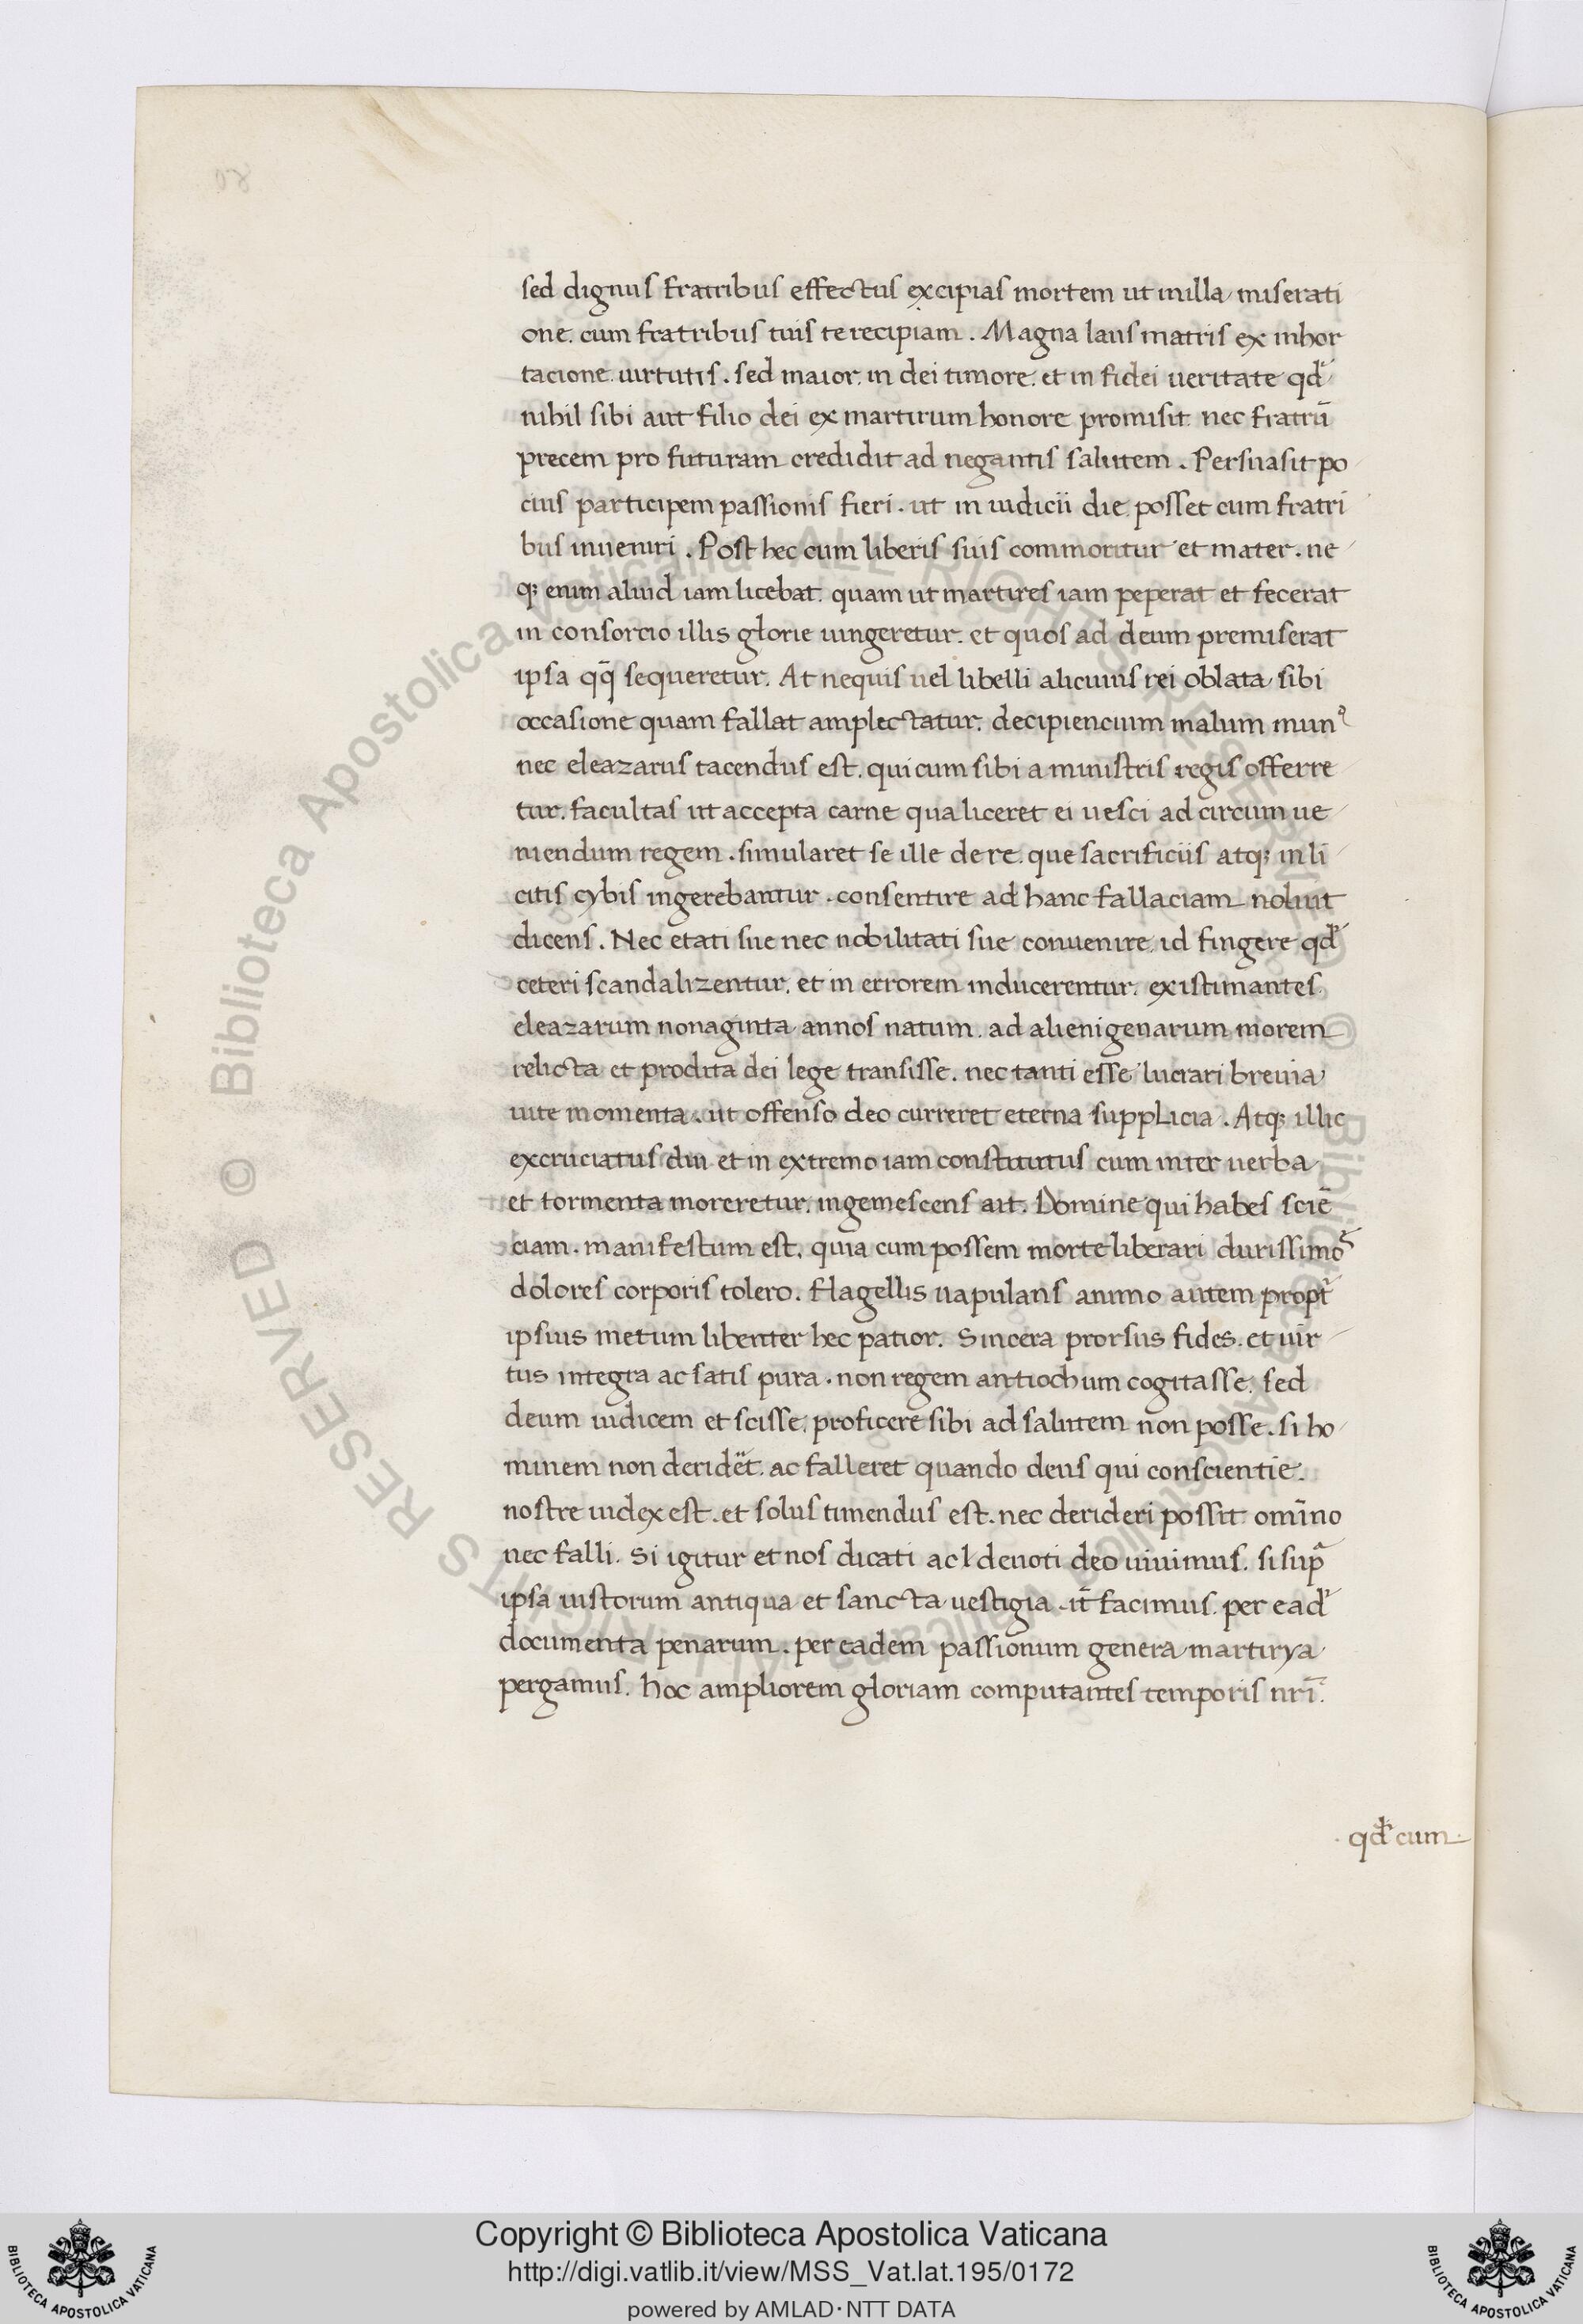 sed dignus fratribus effectus excipias mortem ut inilla miserati
one. cum fratribus tuis te recipiam. Magna laus matris ex inhor
tacione. uirtutis. sed maior. in dei timore. et in fidei ueritate qđ
nihil sibi aut filio dei ex martirum honore promisit. nec fratrū
precem pro futuram credidit ad negantis salutem. Persuasit po
cius participem passionis fieri. ut in iudicii die. posset cum fratri
bus inueniri. Post hec cum liberis suis commoritur et mater. ne
qꝫ enim aliud iam licebat. quam ut martires iam peperat et fecerat
in consorcio illis glorie iungeretur. et quos ad deum premiserat
ipsa qq̄ sequeretur. At nequis uel libelli alicuius rei oblata sibi
occasione quam fallat amplectatur. decipiencium malum munꝰ
nec eleazarus tacendus est. qui cum sibi a ministris regis offerre
tur. facultas ut accepta carne qua liceret ei uesci ad circum ue
niendum regem. simularet se ille de re. que sacrificiis atqꝫ inli
citis cybis ingerebantur. consentire ad hanc fallaciam noluit
dicens. Nec etati sue nec nobilitati sue conuenire. id fingere qđ
ceteri scandalizentur. et in errorem inducerentur. existimantes.
eleazarum nonaginta annos natum. ad alienigenarum morem
relicta et prodita dei lege transisse. nec tanti esse lucrari breuia
uite momenta. ut offenso deo curreret eterna supplicia. Atqꝫ illic
excruciatus diu. et in extremo iam constitutus cum inter uerba
et tormenta moreretur. ingemescens ait. Domine qui habes sciē
ciam. manifestum est. quia cum possem morte liberari durissimos
dolores corporis tolero. Flagellis uapulans animo autem propt̄
ipsius metum libenter hec patior. Sincera prorsus fides. et uir
tus integra ac satis pura. non regem antiochum cogitasse. sed
deum iudicem et scisse. proficere sibi ad salutem non posse. si ho
minem non deridēt. ac falleret quando deus qui conscientie.
nostre iudex est. et solus timendus est. nec derideri possit omīno
nec falli. Si igitur et nos dicati ac l deuoti deo uiuimus. si sup̄
ipsa iustorum antiqua et sancta uestigia. it̄ facimus. per eađ
documenta penarum. per eadem passionum genera martirya
pergamus. hoc ampliorem gloriam computantes temporis nrī.
. qđ cum.
© Biblioteca Apostolica Vaticana ALL RIGHTS RESERVED © Biblioteca Apostolica Vaticana ALL RIGHTS RESERVED
Copyright © Biblioteca Apostolica Vaticana
http://digi.vatlib.it/view/MSS_Vat.lat.195/0172
powered by AMLAD·NTT DATA
BIBLIOTECA APOSTOLICA VATICANA
BIBLIOTECA APOSTOLICA VATICANA